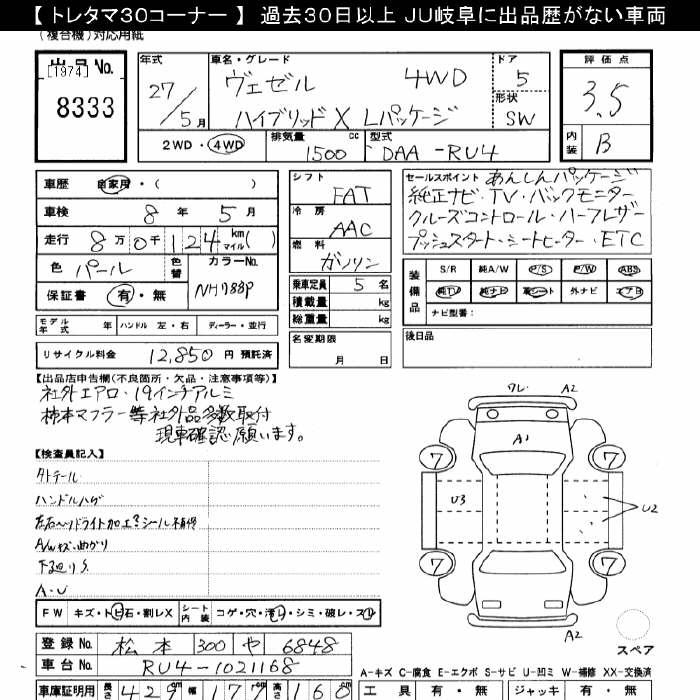 【 トレタマ30コーナー 】 過去30日以上 JU岐阜に出品歴がない車両
(複合機)対応用紙
出品No. [1974] 8333
年式 27/5月
車名・グレード ヴェゼル 4WD
ハイブリッドX Lパッケージ
ドア 5
形状 SW
評価点 3.5
内装 B
2WD・4WD 排気量 1500 cc 型式 DAA-RU4
車歴 自家用・( )
車検 8年 5月
走行 8万0千124 km マイル( )
色 パール 色替 カラーNo. NH788P
保証書 有・無
モデル年式 年 ハンドル 左・右 ディーラー・並行
リサイクル料金 12,850 円 預託済
シフト FAT
冷房 AAC
燃料 ガソリン
乗車定員 5 名
積載量 kg
総重量 kg
名変期限 月 日
セールスポイント あんしんパッケージ
純正ナビ・TV・バックモニター
クルーズコントロール・ハーフレザー
プッシュスタート・シートヒーター・ETC
装備品 S/R 純A/W P/S P/W ABS
純TV 純ナビ 革シート 外ナビ エアB
ナビ型番:
後日品
【出品店申告欄(不良箇所・欠品・注意事項等)】
社外エアロ・19インチアルミ
柿本マフラー等社外品多数取付
現車確認願います。
【検査員記入】
外テール
ハンドルハゲ
A/Wキズ・曲がり
下廻りS
A・U
FW キズ・トビ石・割レX シート内装 コゲ・穴・汚レ・シミ・破レ・スレ
登録No. 松本 300 や 6848
車台No. RU4-1021168
車庫証明用 長さ 429cm 幅 177cm 高さ 160cm
ワレ A2
A1
7 7
U3 U2
7 7
A2
スペア
A-キズ C-腐食 E-エクボ S-サビ U-凹ミ W-補修 XX-交換済
工具 有・無 ジャッキ 有・無